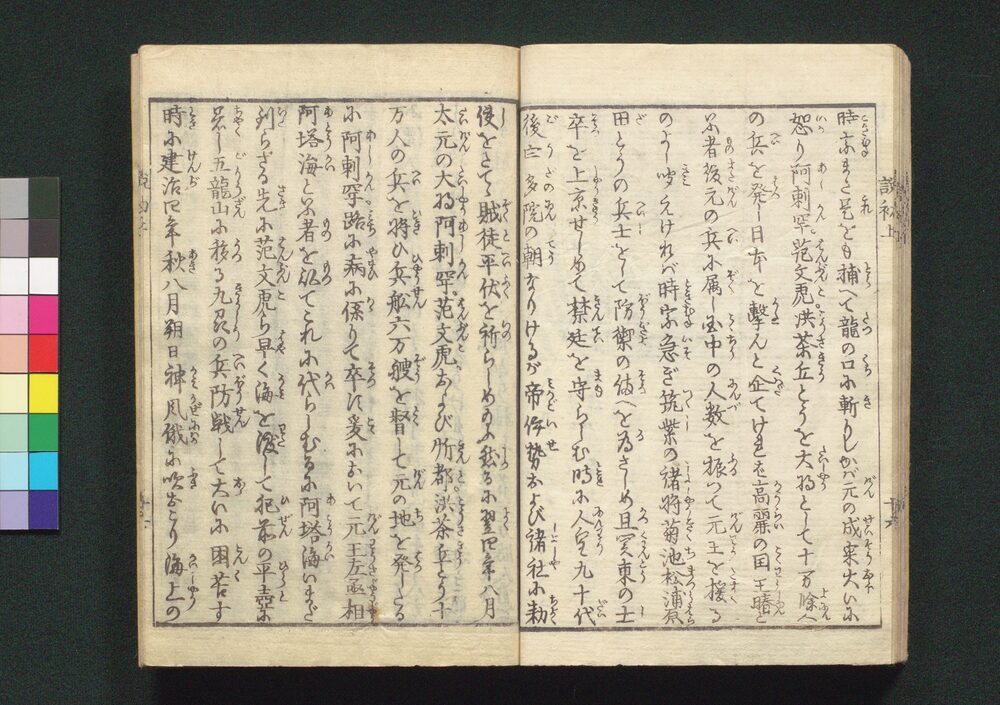 時宗またこれをも捕へて龍の口に斬りしかバ元の成宗大いに
怒り阿刺罕范文虎洪茶丘とうを大将として十万餘人
の兵を発し日本を撃んと企てけれバ高麗の国王賰と
いふ者復元の兵に属し国中の人数を振つて元王を援る
のよし聞えけれバ時宗急ぎ筑紫の諸将菊池松浦原
田とうの兵士をして防禦の備へを為さしめ且関東の士
卒を上京せしめて禁廷を守らしむ時に人皇九十代
後宇多院の朝なりけるが帝伊勢および諸社に勅
使をたて賊徒平伏を祈らしめ給ふ然るに翌四年八月
太元の大将阿刺罕范文虎および忻都洪茶丘とう十
万人の兵を将ひ兵船六万艘を督して元の地を発しける
に阿刺罕路に病に係りて卒に爰において元王左丞相
阿塔海といふ者を以てこれに代らしむるに阿塔海いまだ
到らざる先に范文虎ら早く海を渡して肥前の平壺に
着し五龍山に移る九州の兵防戦して大いに困苦す
時に建治四年秋八月朔日神風俄に吹おこり海上の